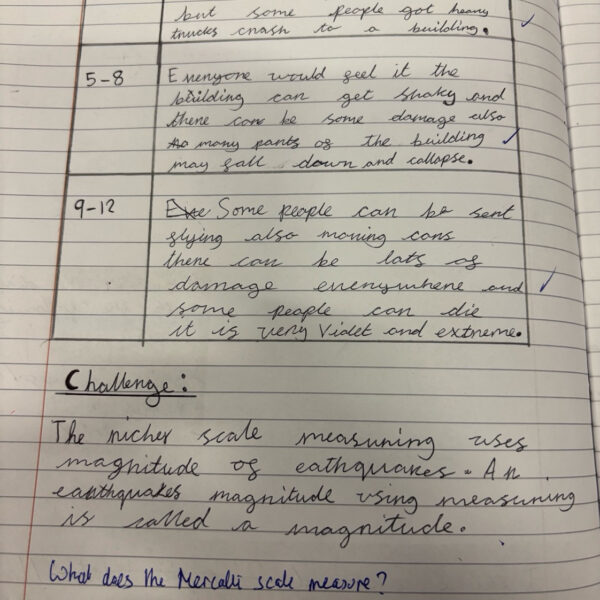 but some people got heavy
trucks crash to a building.
5-8
Everyone would feel it the
building can get shaky and
there can be some damage also
so many parts of the building
may fall down and collapse.
9-12
Exe Some people can be sent
flying also moving cars
there can be lots of
damage everywhere and
some people can die
it is very Violet and extreme.
Challenge:
The richer scale measuring uses
magnitude of eathquakes. An
earthquakes magnitude using measuring
is called a magnitude.
What does the Mercalli scale measure?